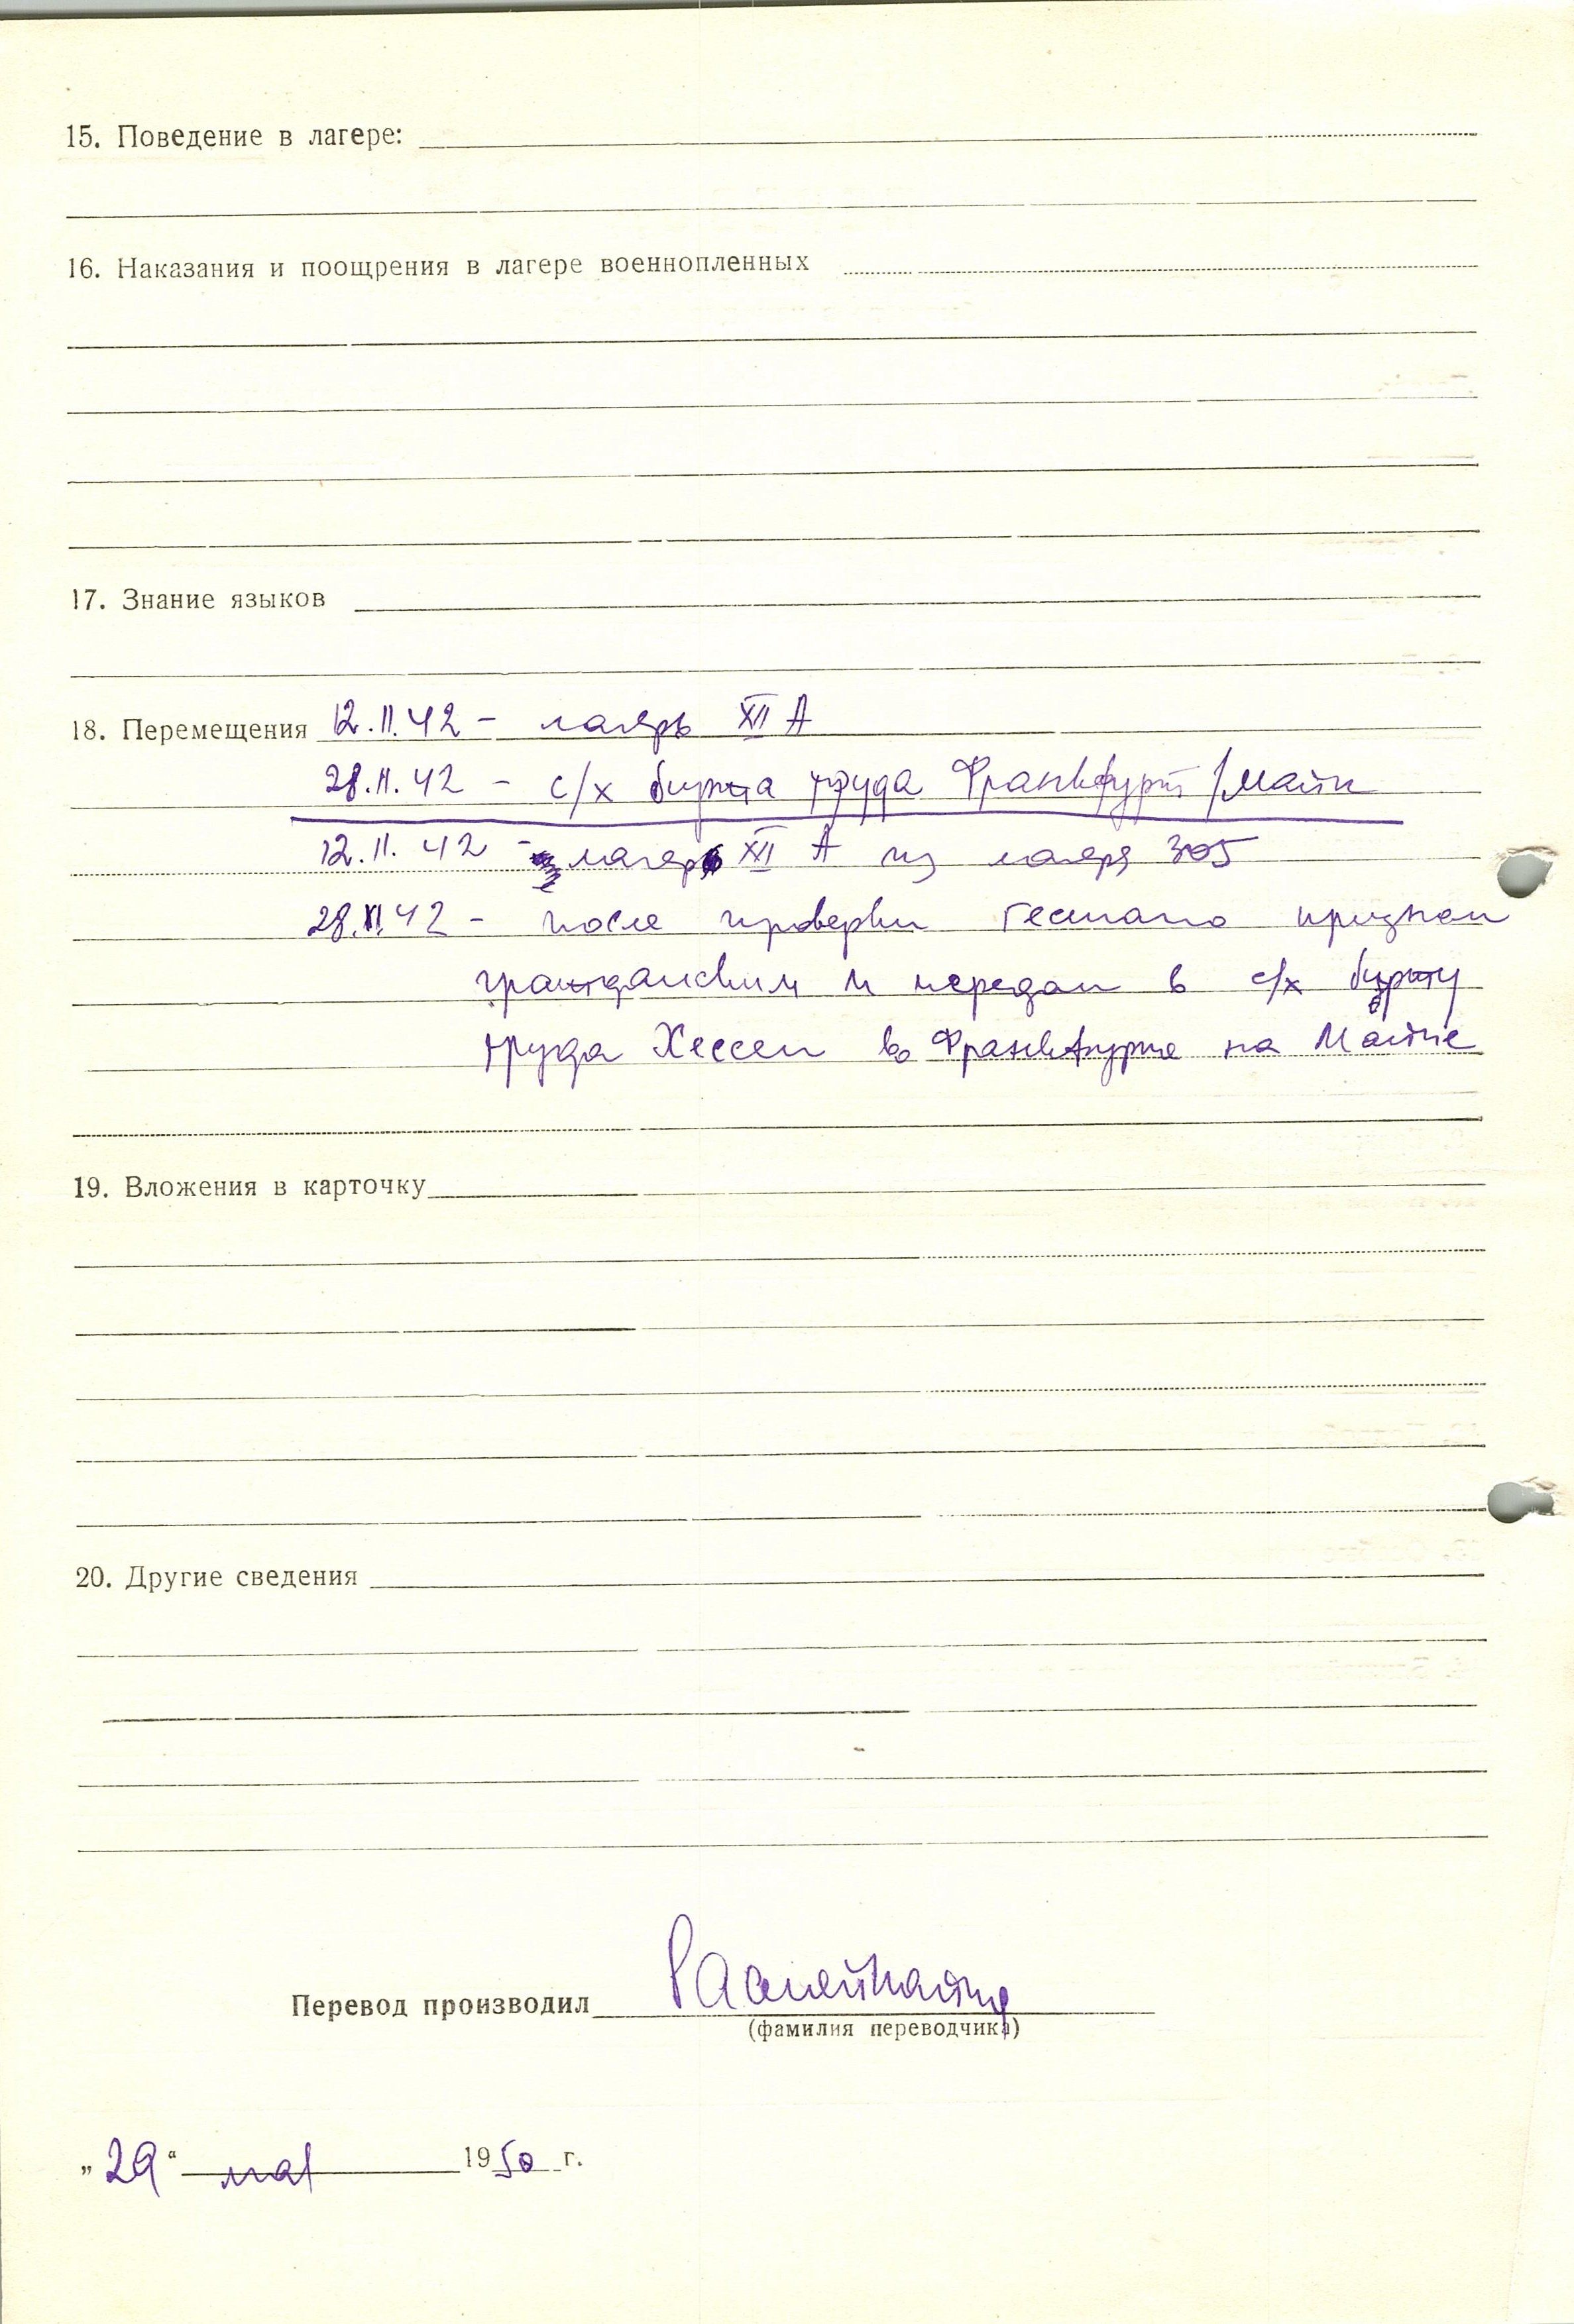 15. Поведение в лагере:
16. Наказания и поощрения в лагере военнопленных
17. Знание языков
18. Перемещения 12.11.42 - лагерь XII A
28.11.42 - с/х биржа труда Франкфурт/Майн
12.11.42 - лагерь XII A из лагеря 305
28.XI.42 - после проверки Гестапо признан
гражданским и передан в с/х биржу
труда Хессен во Франкфурте на Майне
19. Вложения в карточку
20. Другие сведения
Перевод производил
(фамилия переводчика)
„29“ мая 1950 г.